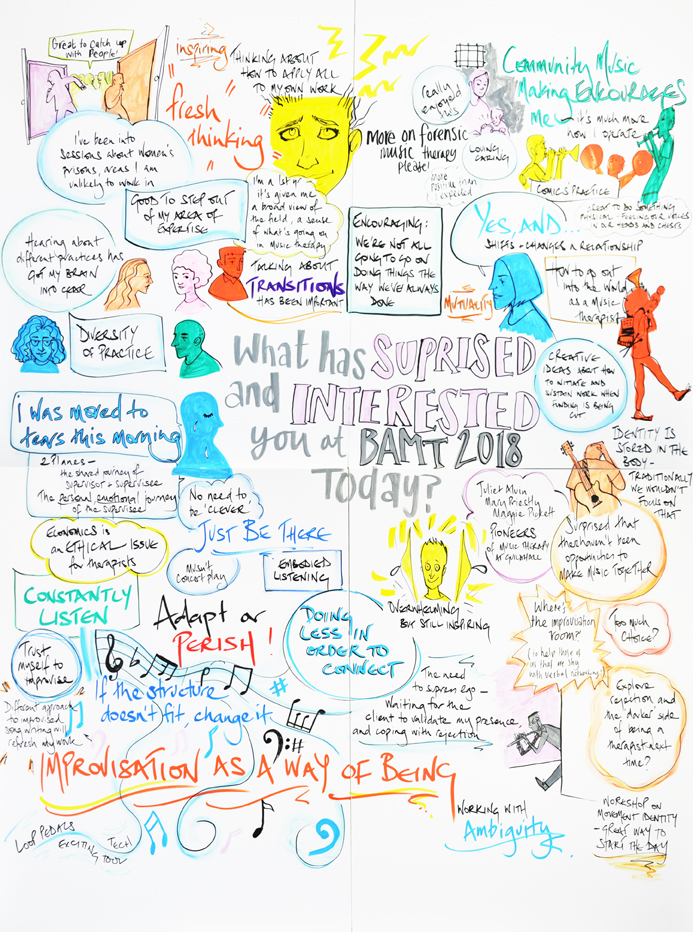 Great to catch up
with People!
inspiring
"fresh
thinking"
THINKING ABOUT
HOW TO APPLY ALL
TO MY OWN WORK
I've been into
sessions about women's
prisons, areas I am
unlikely to work in
GOOD TO STEP OUT
OF MY AREA OF
EXPERTISE
I'm a 1st
it's given me
a broad view of
the field, a sense
of what's going on
in music therapy
More on forensic
music therapy
please!
really
enjoyed
this
LOVING
CARING
more
positive than
expected
Community Music
Making ENCOURAGES
Me - it's much more
how I operate
COMICS PRACTICE
GREAT TO DO SOMETHING
PHYSICAL - FEELING OUR VOICES
IN OUR HEADS AND CHESTS
Hearing about
different practices has
got my brain
into gear
TALKING ABOUT
TRANSITIONS
HAS BEEN IMPORTANT
ENCOURAGING:
WE'RE NOT ALL
GOING TO GO ON
DOING THINGS THE
WAY WE'VE ALWAYS
DONE
YES, AND...
SHIFTS + CHANGES A RELATIONSHIP
MUTUALITY
How to go out
into the world
as a music
therapist
DIVERSITY
OF PRACTICE
CREATIVE
IDEAS ABOUT HOW
TO INITIATE AND
SUSTAIN WORK WHEN
FUNDING IS BEING
CUT
What has SUPRISED
and INTERESTED
you at BAMT 2018
Today?
i was moved to
tears this morning
2 Planes -
the shared journey of
supervisor + supervisee
The personal, emotional journey
of the supervisee
No need to
be 'clever'
IDENTITY IS
STORED IN THE
BODY -
TRADITIONALLY
WE WOULDN'T
FOCUS ON
THAT
Juliet Alvin
Mary Priestly
Maggie Pickett
PIONEERS
OF MUSIC THERAPY
AT GUILDHALL
Surprised that
there haven't been
opportunities to
MAKE MUSIC TOGETHER
ECONOMICS is
an ETHICAL ISSUE
for therapists
JUST BE THERE
Mustn't
concert play
EMBODIED
LISTENING
OVERWHELMING
BUT STILL INSPIRING
CONSTANTLY
LISTEN
Adapt or
PERISH!
DOING
LESS IN
ORDER TO
CONNECT
Where's
the improvisation
room?
(to help those of
us that are shy
with verbal networking)
Too much
Choice?
Trust
myself to
improvise
If the structure
doesn't fit, change it
The need
to supress ego -
Waiting for the
client to validate my presence,
and coping with rejection
Explore
rejection and
the darker side
of being a
therapist next
time?
Different approach
to improvised
song writing will
refresh my work
IMPROVISATION AS A WAY OF BEING
WORKING WITH
Ambiguity
WORKSHOP ON
MOVEMENT IDENTITY
- GREAT WAY TO
START THE DAY
LOOP PEDALS
EXCITING TOOL
TECH